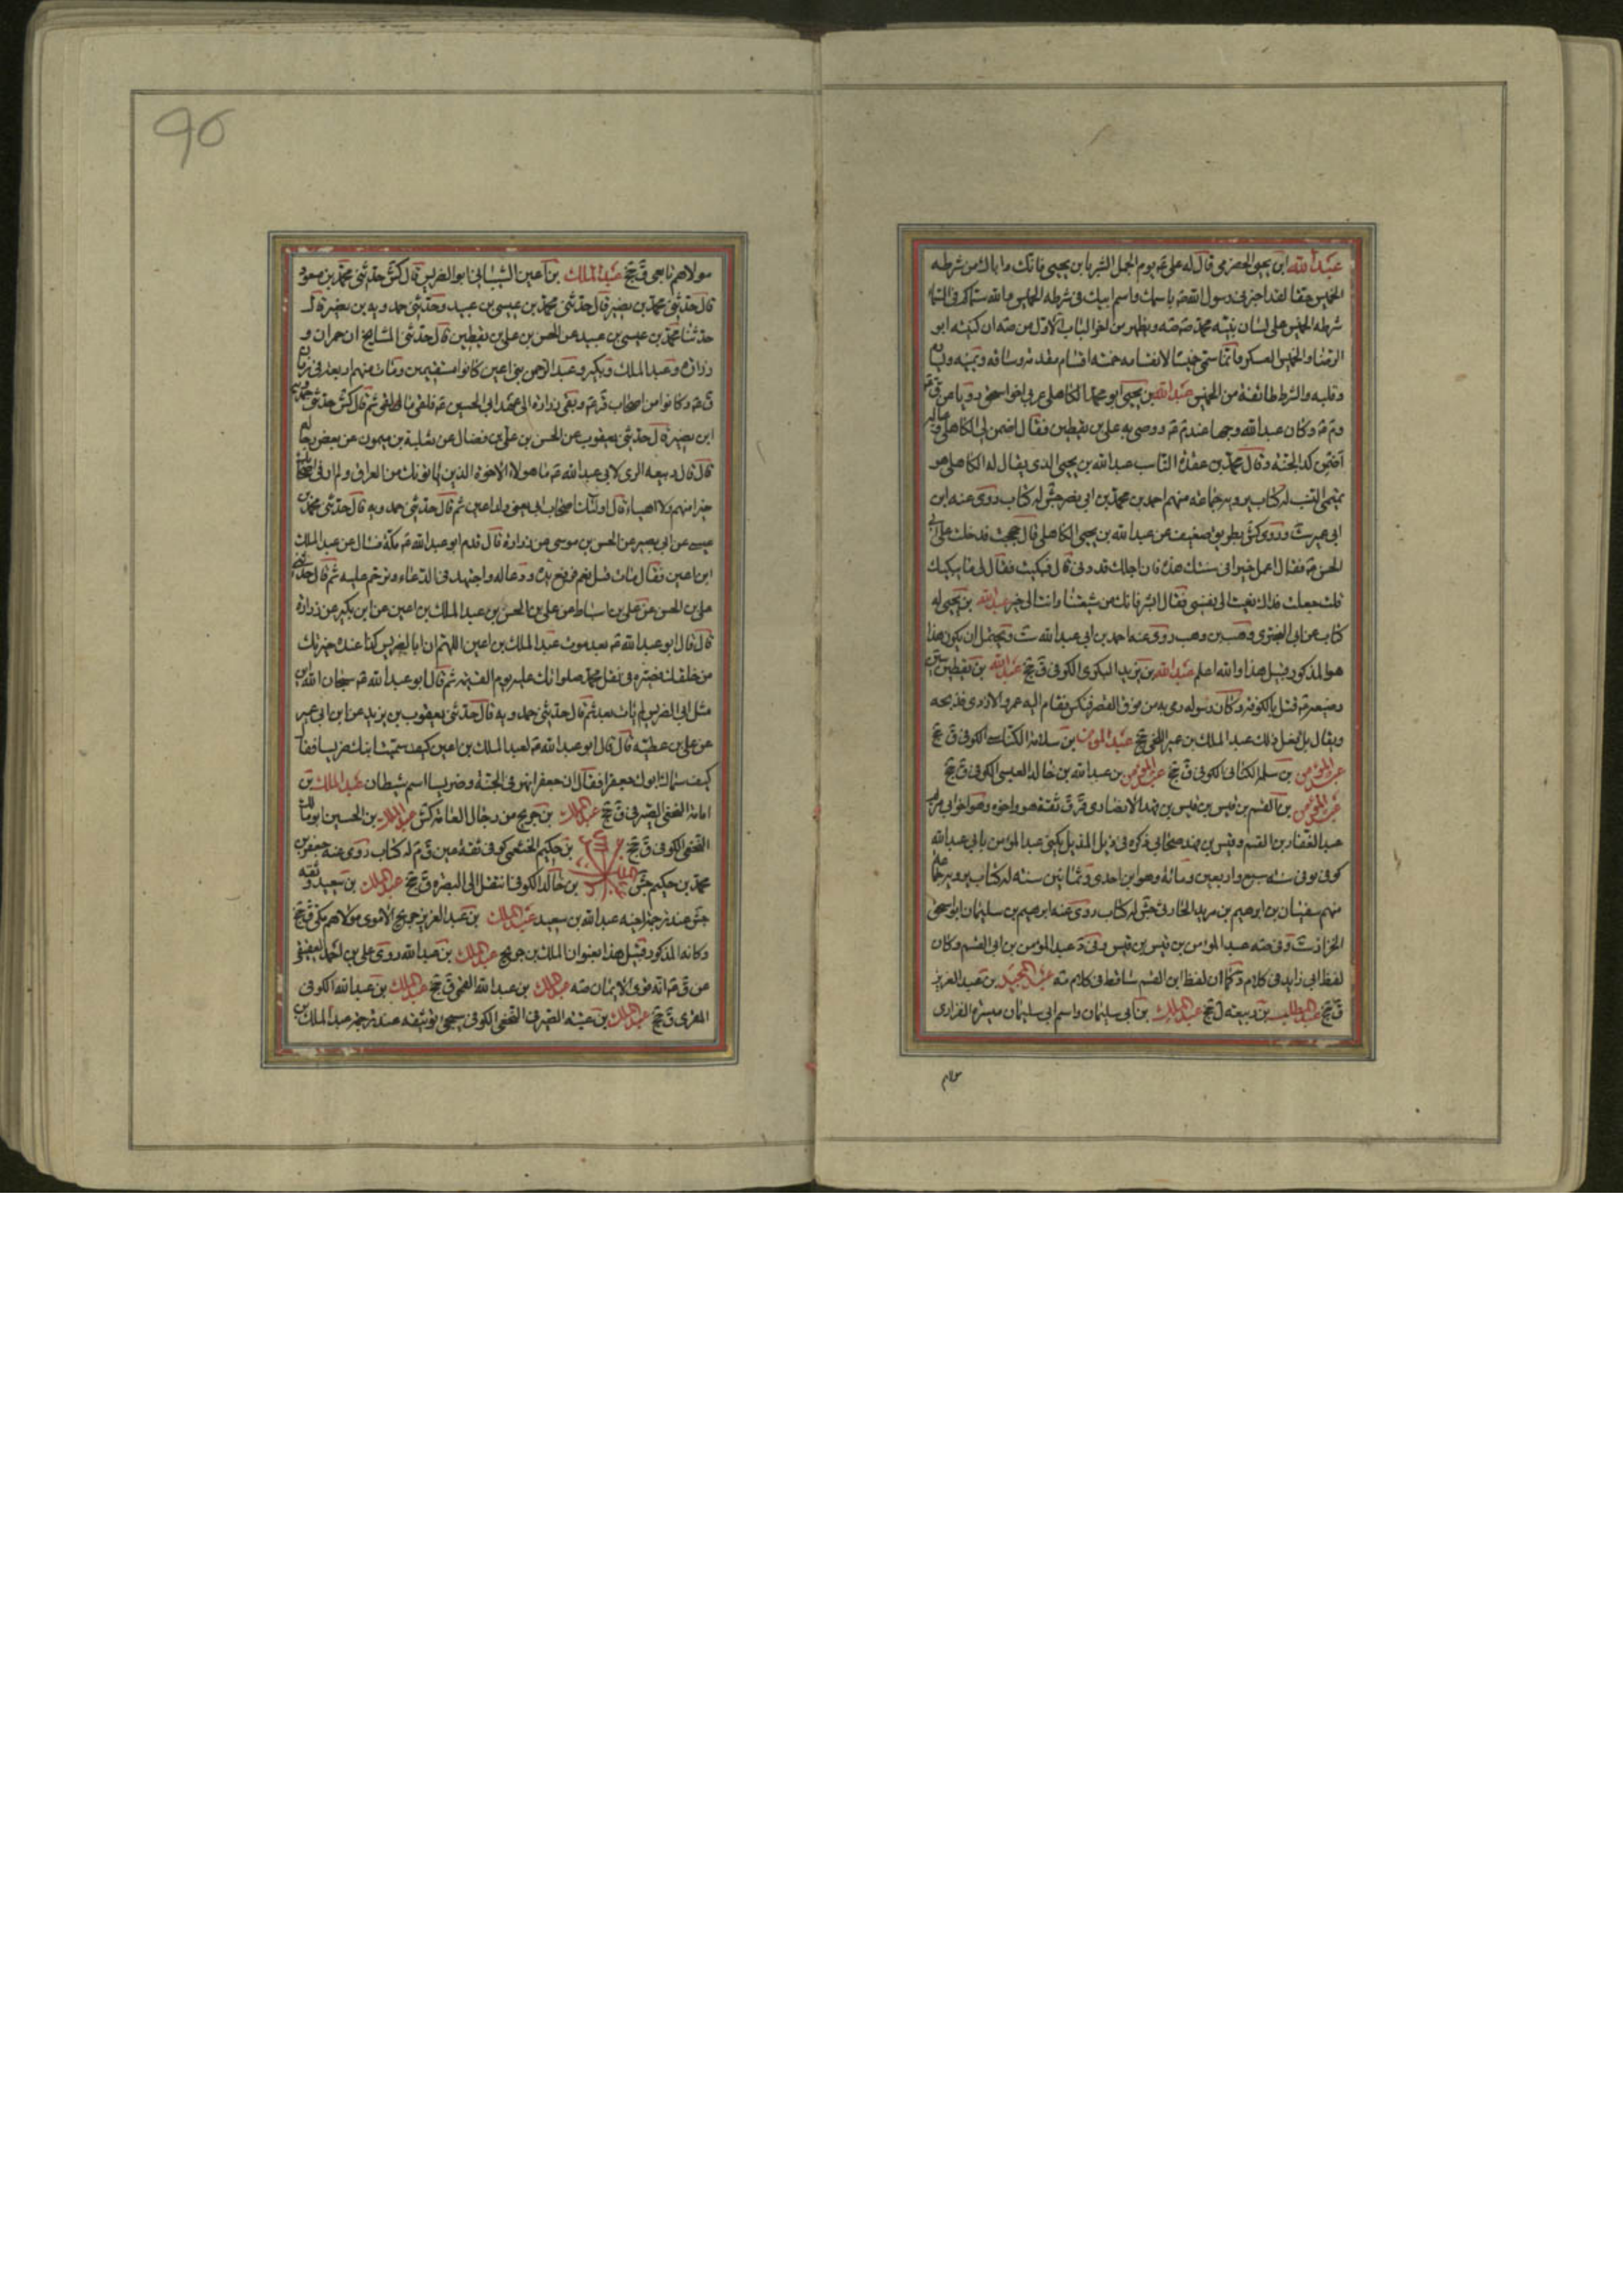 عبد الله ابن يحيى الحضرمي قال له علي ع يوم الجمل ابشر يا بن يحيى فانك واباك من شرطه
الخميس حقا لقد اخبرني رسول الله ص باسمك واسم ابيك في شرطه الخميس والله سماكم في السماء
شرطه الخميس على لسان نبيه محمد ص
الرضا والخميس العسكر وانما سمي خميسا لانقسامه خمسه اقسام مقدمه وساقه وميمنه وميسره
وقلبه والشرط طائفة من الخميس عبد الله بن يحيى ابو محمد الكاهلي عربي اخو اسحق رويا عن ق ع
وم ع وكان عبد الله وجها عند م ع ووصى به علي بن يقطين فقال اضمن لي الكاهلي وعياله
اضمن لك الجنة وقال محمد بن عقدة الناسب عبد الله بن يحيى الذي يقال له الكاهلي هو
تميمي النسب له كتاب يرويه جماعه منهم احمد بن محمد بن ابي نصر جش له كتاب روى عنه ابن
ابي عمير ست وروى كش بطريق ضعيف عن عبد الله بن يحيى الكاهلي قال حججت فدخلت على ابي
الحسن ع فقال اعمل خيرا في سنتك هذه فان اجلك قد دنى قال فبكيت فقال لي ما يبكيك
قلت جعلت فداك نعيت الى نفسي فقال ابشر فانك من شيعتنا وانت الى خير عبد الله بن يحيى له
كتاب عن ابي البختري وهب بن وهب روى عنه احمد بن ابي عبد الله ست ويحتمل ان يكون هذا
هو المذكور قبيل هذا والله اعلم عبد الله بن يزيد البكري الكوفي ق جخ عبد الله بن يقطين سين
رضيعه ع قتل بالكوفه وكان رسوله رمي به من فوق القصر فتكسر فقام اليه عمرو الازدي فذبحه
ويقال بل فعل ذلك عبد الملك بن عمير اللخمي جخ عبد المؤمن بن سلامة الكناسي الكوفي ق جخ
عبد المؤمن بن سلمة الكناني الكوفي ق جخ عبد المؤمن بن عبد الله بن خالد العبسي الكوفي ق جخ
عبد المؤمن بن القسم بن قيس بن قيس بن فهد الانصاري قر ق ثقة هو واخوه وهو اخو ابي مريم
عبد الغفار بن القسم وقيس بن فهد صحابي ذكره في ذيل المذيل يكنى عبد المؤمن بابي عبد الله
كوفي توفي سنه سبع واربعين ومائة وهو ابن احدى وثمانين سنه له كتاب يرويه جماعة
منهم سفيان بن ابرهيم بن مزيد الحارثي جش له كتاب روى عنه ابرهيم بن سليمان ابو اسحق
الخزاز ست وفي صه عبد المؤمن بن قيس بن قيس وفي د عبد المؤمن بن ابي القسم وكان
لفظ ابي زايد في كلام د كما ان لفظ ابن القسم ساقط في كلام صه عبد المجيد بن عبد العزيز
ق جخ عبد المطلب بن ربيعه ل جخ عبد الملك بن ابي سليمان واسم ابي سليمان ميسره الفزاري
مولاهم
96
مولاهم تابعي ق جخ عبد الملك بن اعين الشيباني ابو الضريس قال كش حدثني محمد بن مسعود
قال حدثني محمد بن نصير قال حدثني محمد بن عيسى بن عبيد وحدثني حمدويه بن نصير قال
حدثنا محمد بن عيسى بن عبيد عن الحسن بن علي بن يقطين قال حدثني المشايخ ان حمران و
زرارة وعبد الملك وبكير وعبد الرحمن بني اعين كانوا مستقيمين ومات منهم اربعه في زمان
ق ع وكانوا من اصحاب قر ع وبقي زرارة الى عهد ابي الحسين ع فلقي ما لقي ثم قال كش حدثني حمدويه
ابن نصير قال حدثني يعقوب عن الحسن بن علي بن فضال عن ثعلبة بن ميمون عن بعض رجاله
قال قال ربيعه الري لابي عبد الله ع ما هولاء الاخوة الذين ياتونك من العراق ولم ار في اصحابك
خيرا منهم ولا اهيا قال اولئك اصحاب ابي يعني ولد اعين ثم قال حدثني حمدويه قال حدثني محمد بن
عيسى عن ابي نصر عن الحسن بن موسى عن زرارة قال قدم ابو عبد الله ع مكة فسال عن عبد الملك
ابن اعين فقال مات قيل نعم فرفع يده ودعا له واجتهد في الدعاء وترحم عليه ثم قال حدثني
علي بن الحسن عن علي بن اسباط عن علي بن الحسن بن عبد الملك بن اعين عن ابن بكير عن زرارة
قال قال ابو عبد الله ع بعد موت عبد الملك بن اعين اللهم ان ابا الضريس كنا عنده خيرتك
من خلقك فصيره في ثقل محمد صلواتك عليه يوم القيمه ثم قال ابو عبد الله ع سبحان الله اين
مثل ابي الضريس لم يات بعد ثم قال حدثني حمدويه قال حدثني يعقوب بن يزيد عن ابن ابي عمير
عن علي بن عطيه قال قال ابو عبد الله ع لعبد الملك بن اعين كيف سميت ابنك ضريسا فقال
كيف سماك ابوك جعفرا فقال ان جعفرا نهر في الجنة وضريسا اسم شيطان عبد الملك بن
النخعي الصيرفي ق جخ عبد الملك بن جريح من رجال العامة كش عبد الملك بن الحسين ابو مالك
النخعي الكوفي ق جخ عبد الملك بن حكيم الخثعمي كوفي ثقة عين ق م له كتاب روى عنه جعفر بن
محمد بن حكيم جش عبد الملك بن خالد الكوفي انتقل الى البصره ق جخ عبد الملك بن سعيد ثقه
جش عبد الله بن سعيد عبد الملك بن عبد العزيز جريح الاموي مولاهم مكي ق جخ
وكانه المذكور قبيل هذا بعنوان الملك بن جريح عبد الملك بن عبد الله روى علي بن احمد العقيقي
عن ق ع انه قوي الايمان صه عبد الملك بن عبد الله القمي ق جخ عبد الملك بن عبد الله الكوفي
المقري ق جخ عبد الملك بن عتبه الصيرفي النخعي الكوفي سيجي توثيقه عند ترجمه عبد الملك بن